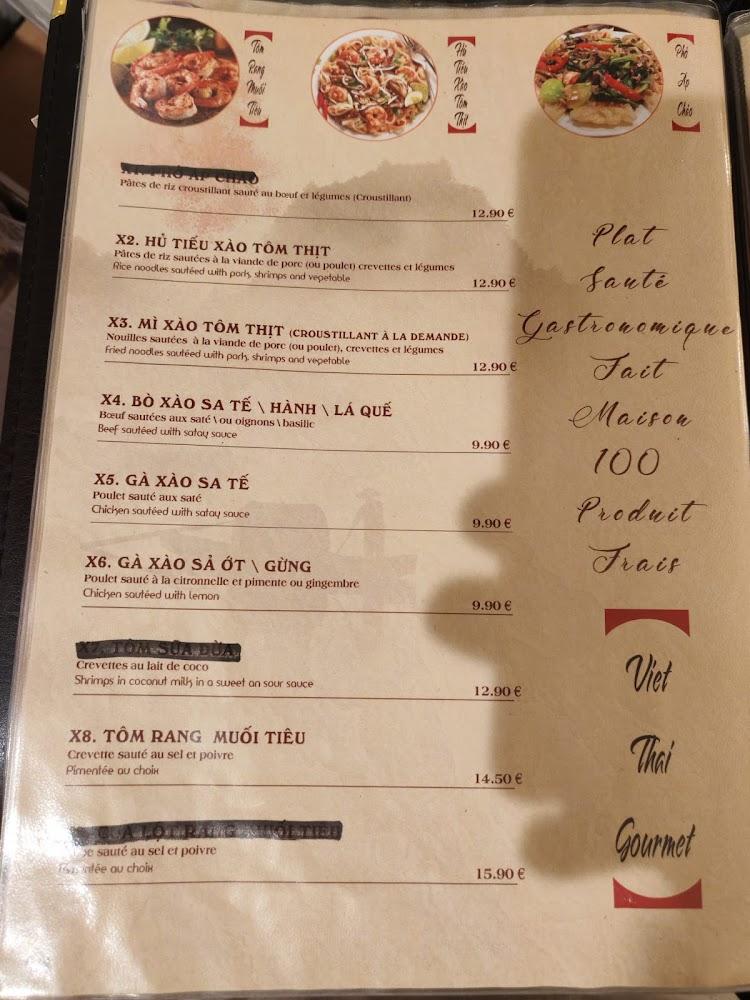 Tôm
Rang
Muối
Tiêu
Hủ
Tiếu
Xào
Tôm
Thịt
Phở
Áp
Chảo
X1. PHỞ ÁP CHẢO
Pâtes de riz croustillant sauté au bœuf et légumes (Croustillant)
12.90 €
X2. HỦ TIẾU XÀO TÔM THỊT
Pâtes de riz sautées à la viande de porc (ou poulet) crevettes et légumes
Rice noodles sautéed with pork, shrimps and vegetable
12.90 €
X3. MÌ XÀO TÔM THỊT (CROUSTILLANT À LA DEMANDE)
Nouilles sautées à la viande de porc (ou poulet), crevettes et légumes
Fried noodles sautéed with pork, shrimps and vegetable
12.90 €
X4. BÒ XÀO SA TẾ \ HÀNH \ LÁ QUẾ
Bœuf sautées aux saté \ ou oignons \ basilic
Beef sautéed with satay sauce
9.90 €
X5. GÀ XÀO SA TẾ
Poulet sauté aux saté
Chicken sautéed with satay sauce
9.90 €
X6. GÀ XÀO SẢ ỚT \ GỪNG
Poulet sauté à la citronnelle et pimente ou gingembre
Chicken sautéed with lemon
9.90 €
X7. TÔM SỮA DỪA
Crevettes au lait de coco
Shrimps in coconut milk in a sweet an sour sauce
12.90 €
X8. TÔM RANG MUỐI TIÊU
Crevette sauté au sel et poivre
Pimentée au choix
14.50 €
LỘT RANG
sauté au sel et poivre
au choix
15.90 €
Plat
Sauté
Gastronomique
Fait
Maison
100
Produit
Frais
Viet
Thai
Gourmet